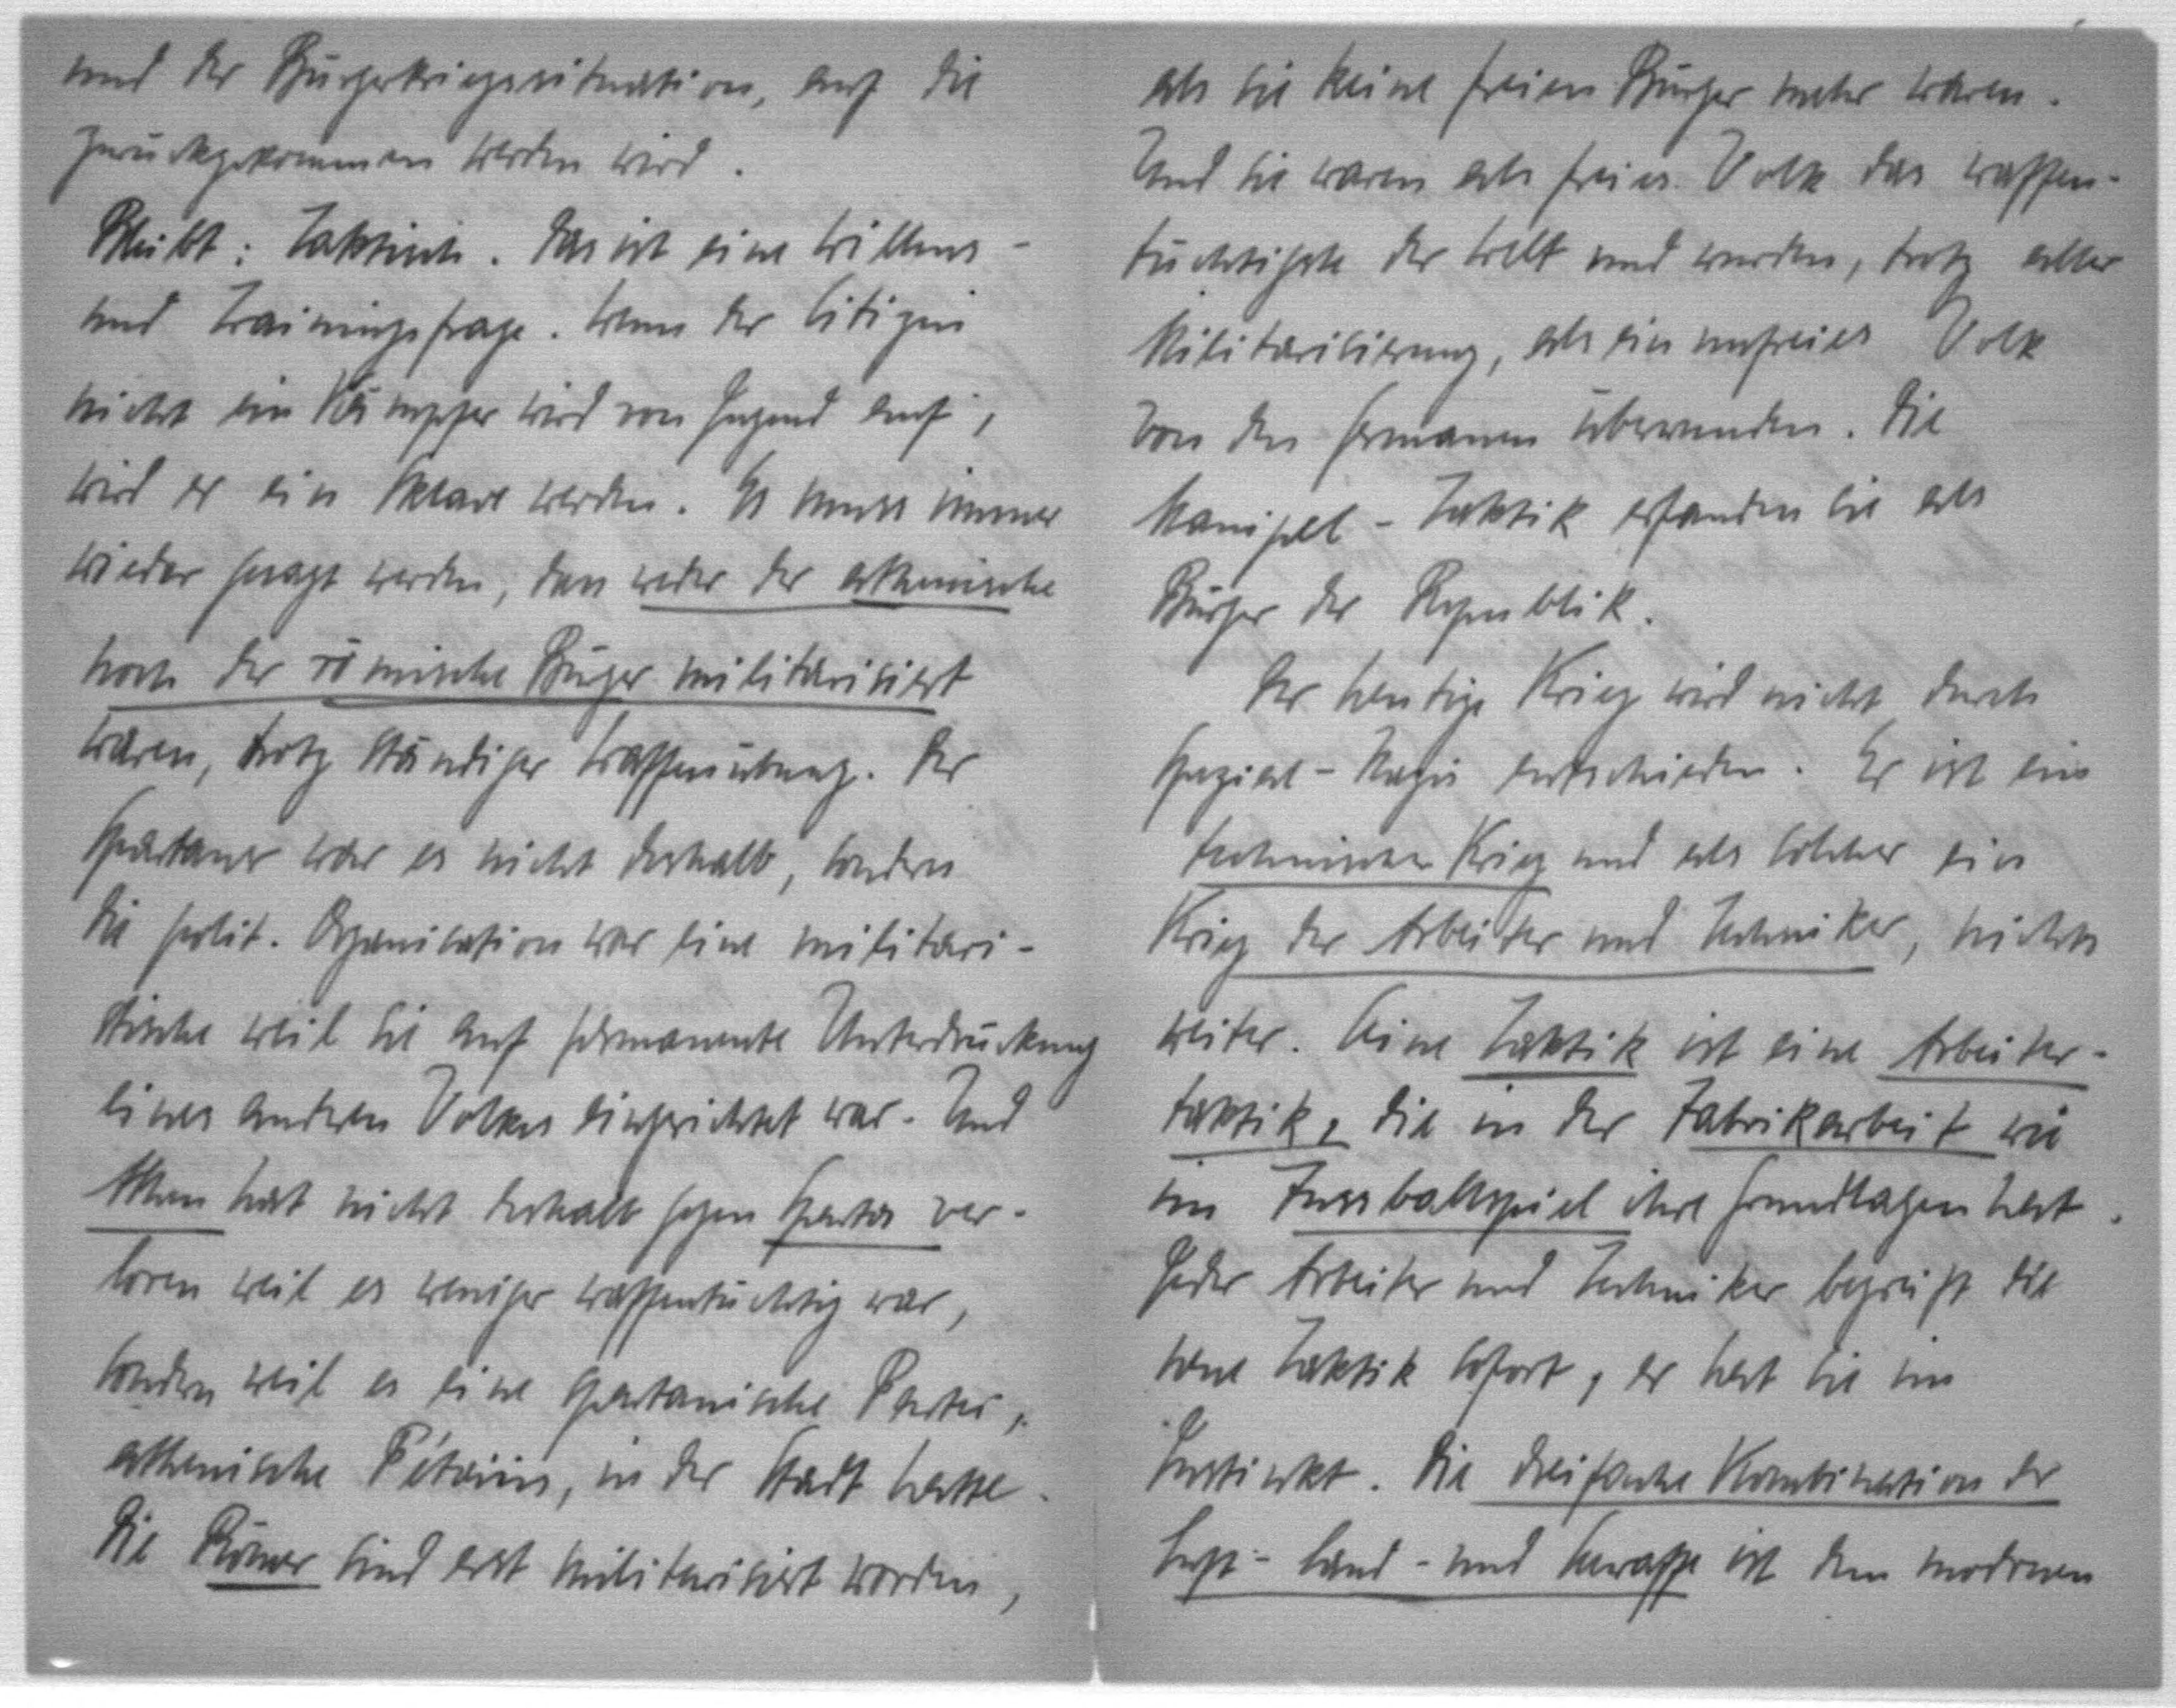 und der Bürgerkriegssituation, auf die
zurückgekommen werden wird.
Bleibt: Taktisch. Das ist eine Willens-
und Trainingsfrage. Wenn der Citizen
nicht ein Kämpfer wird von Jugend auf,
wird er ein Sklave werden. Es muss immer
wieder gesagt werden, dass weder der athenische
noch der römische Bürger militarisiert
waren, trotz ständiger Waffenübung. Der
Spartaner war es nicht deshalb, sondern
die polit. Organisation war eine militari-
stische weil sie auf permanente Unterdrückung
eines anderen Volkes eingerichtet war. Und
Athen hat nicht deshalb gegen Sparta ver-
loren weil es weniger waffentüchtig war,
sondern weil es eine spartanische Partei,
athenische Pétains, in der Stadt hatte.
Die Römer sind erst militarisiert worden,
als sie keine freien Bürger mehr waren.
Und sie waren als freies Volk das waffen-
tüchtigste der Welt und wurden, trotz aller
Militarisierung, als ein unfreies Volk
von den Germanen überwunden. Die
Manipel-Taktik erfanden sie als
Bürger der Republik.
Der heutige Krieg wird nicht durch
Spezial-Magie entschieden. Er ist ein
technischer Krieg und als solcher ein
Krieg der Arbeiter und Techniker, nichts
weiter. Seine Taktik ist eine Arbeiter-
taktik, die in der Fabrikarbeit wie
im Fussballspiel ihre Grundlagen hat.
Jeder Arbeiter und Techniker begreift die
neue Taktik sofort, er hat sie im
Instinkt. Die dreifache Kombination der
Luft- Land- und Seewaffe ist dem modernen